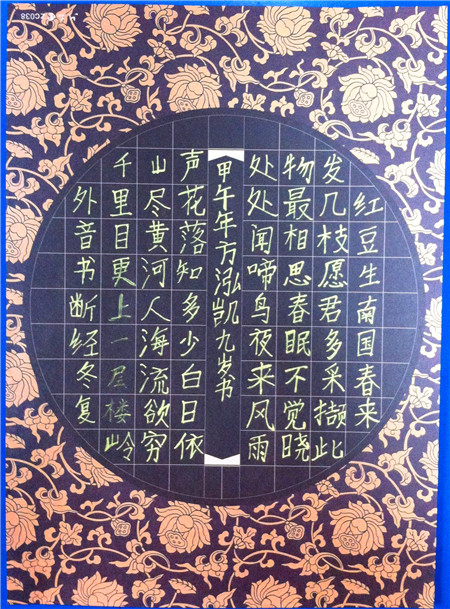 红豆生南国春来
发几枝愿君多采撷此
物最相思春眠不觉晓
处处闻啼鸟夜来风雨
甲午年方泓凯九岁书
声花落知多少白日依
山尽黄河人海流欲穷
千里目更上一层楼岭
外音书断经冬复